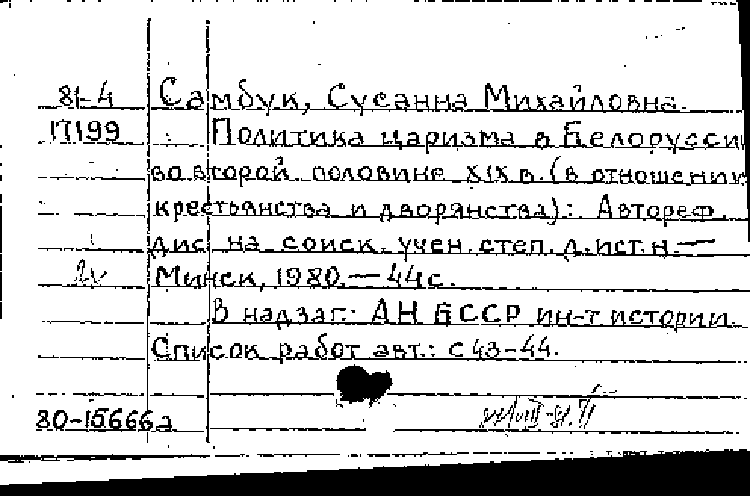 81-4 Самбук, Сусанна Михайловна.
17199 Политика царизма в Белоруссии
во второй половине XIX в. (в отношении
крестьянства и дворянства): Автореф.
дис. на соиск. учен. степ. д. ист. н. —
Минск, 1980. — 44 с.
В надзаг.: АН БССР ин-т истории.
Список работ авт.: с 43-44.
80-15666а